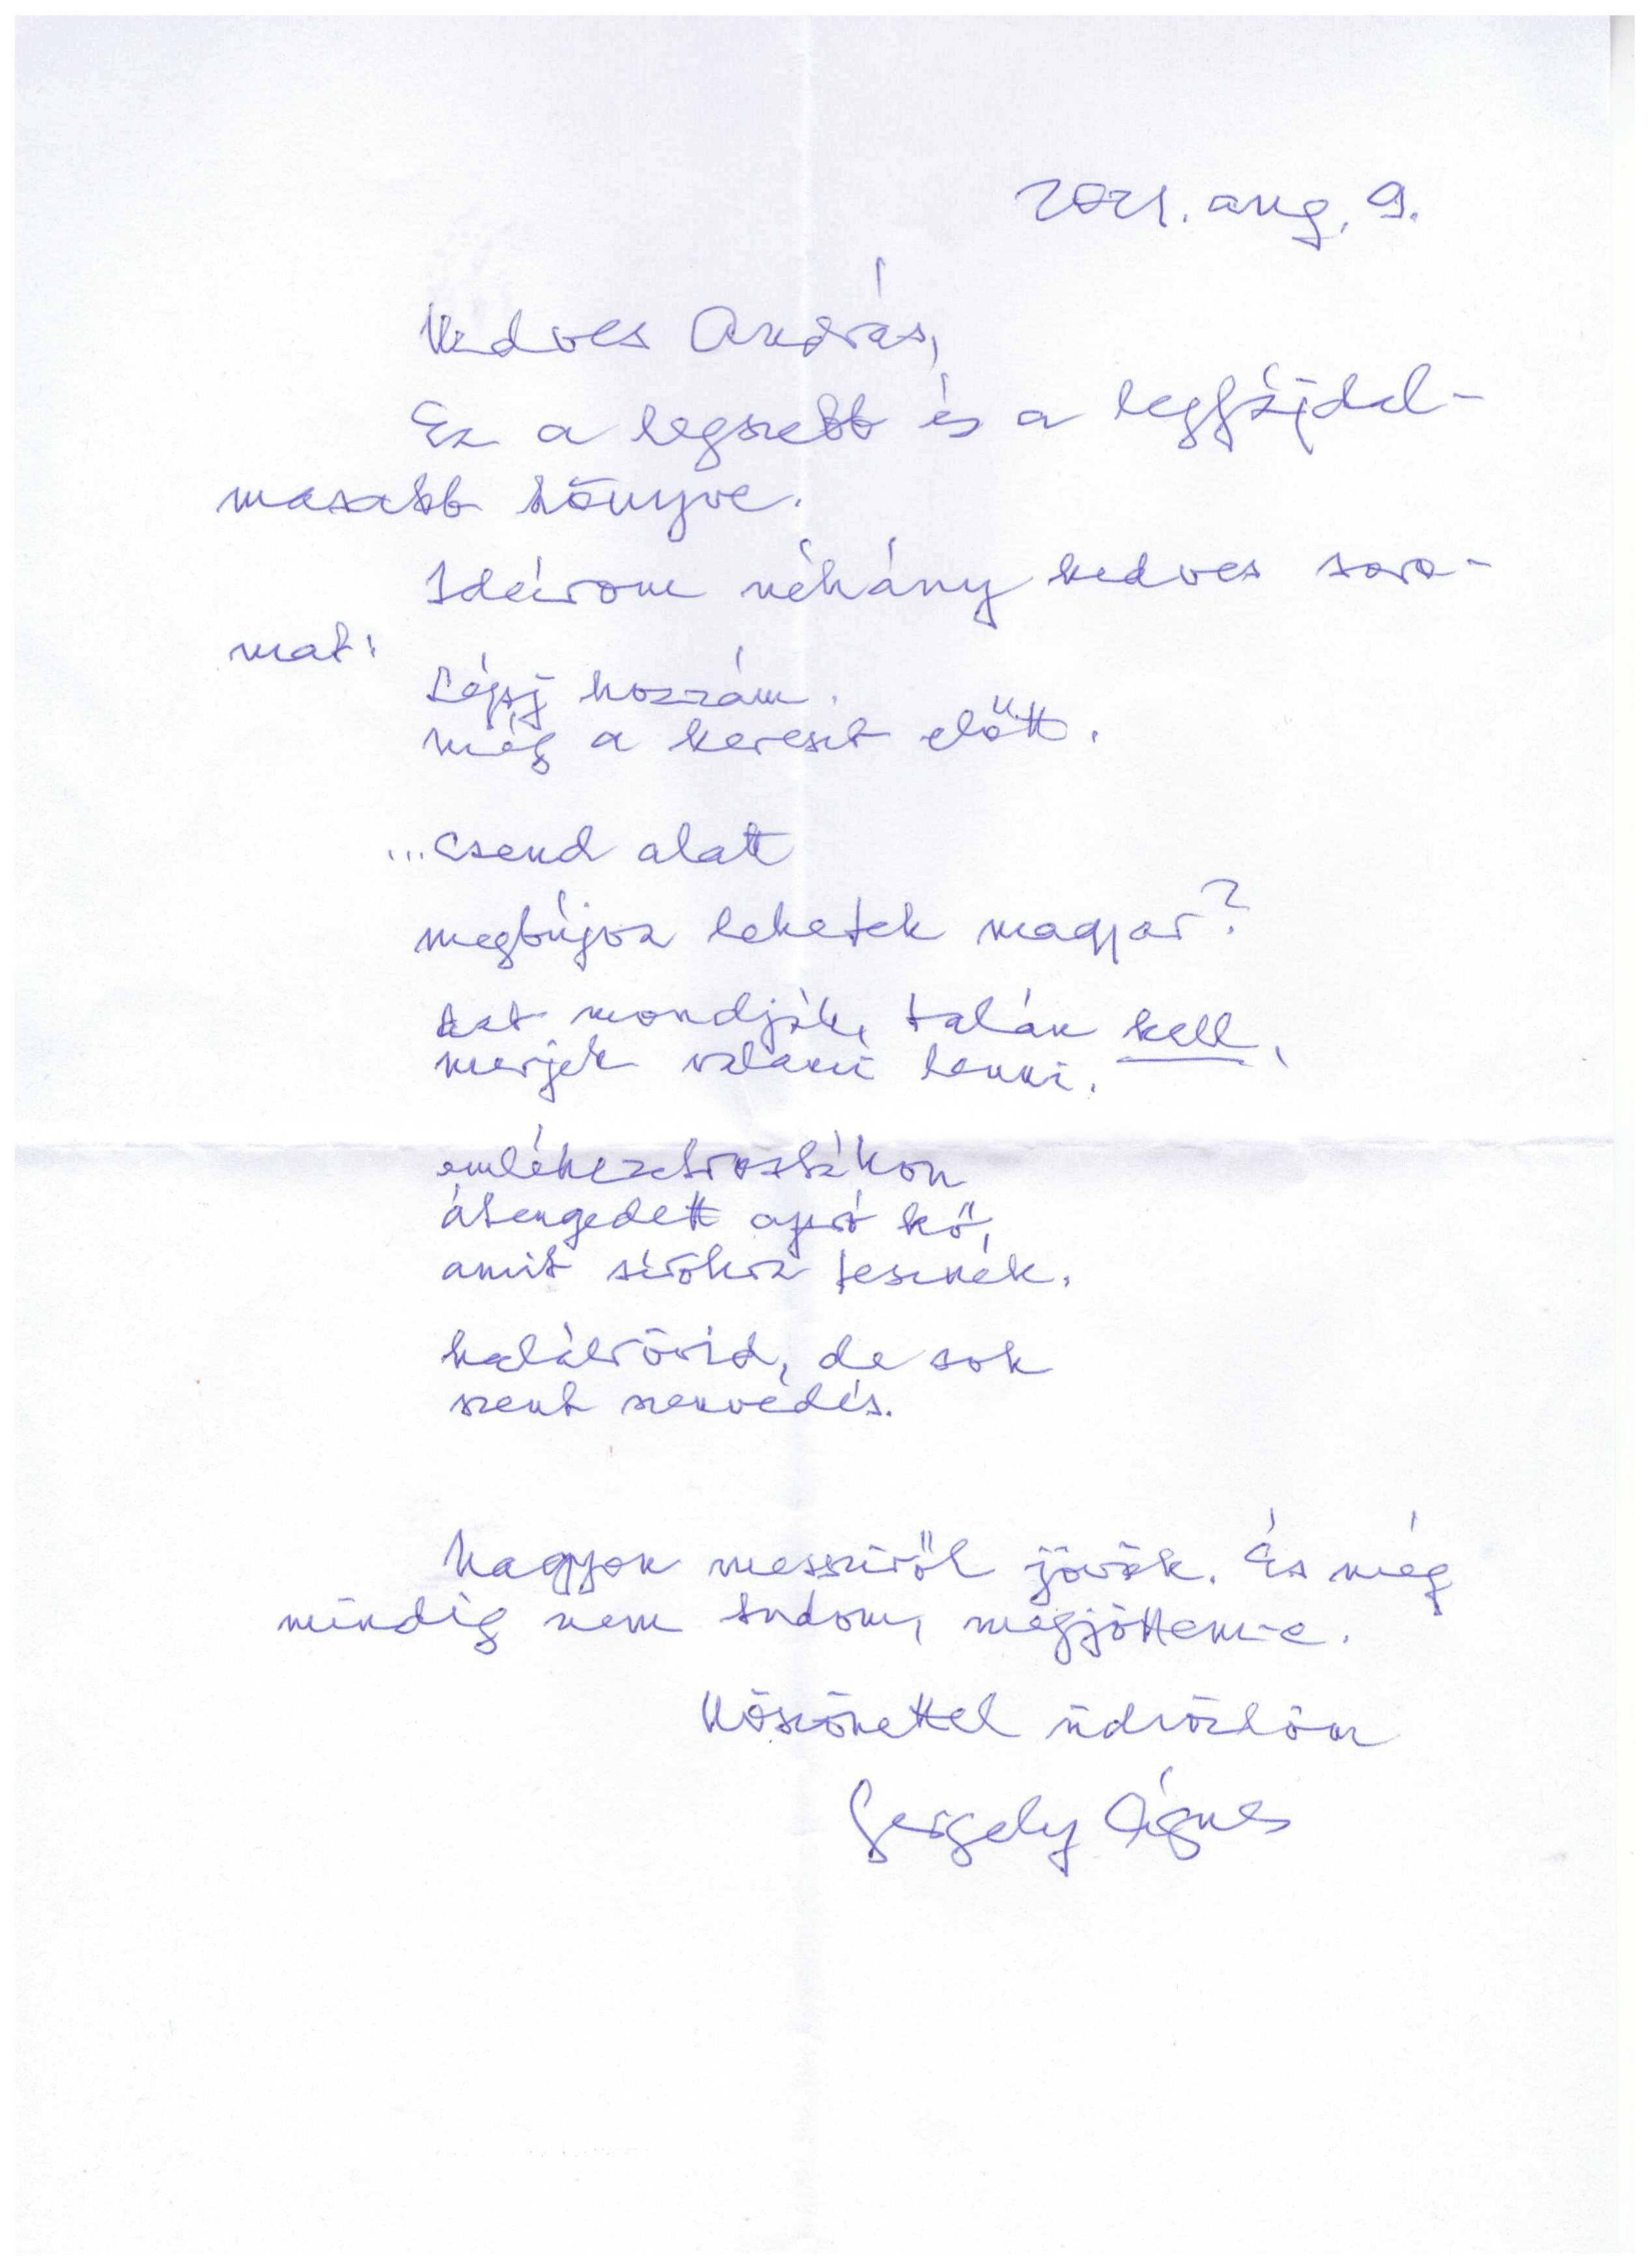 2021. aug. 9.
Kedves András,
Ez a legszebb és a legfájdal-
masabb könyve.
Ideírom néhány kedves soro-
mat:
Lépj hozzám
még a kereszt előtt.
...csend alatt
megbújva lehetek magyar?
azt mondják, talán kell,
merjek valaki lenni.
emlékezetrostákon
átengedett apró kő,
amit sírokra tesznek.
halálrövid, de sok
szent szenvedés.
Nagyon messziről jövök. És még
mindig nem tudom, megjöttem-e.
Köszönettel üdvözlöm
Gergely Ágnes